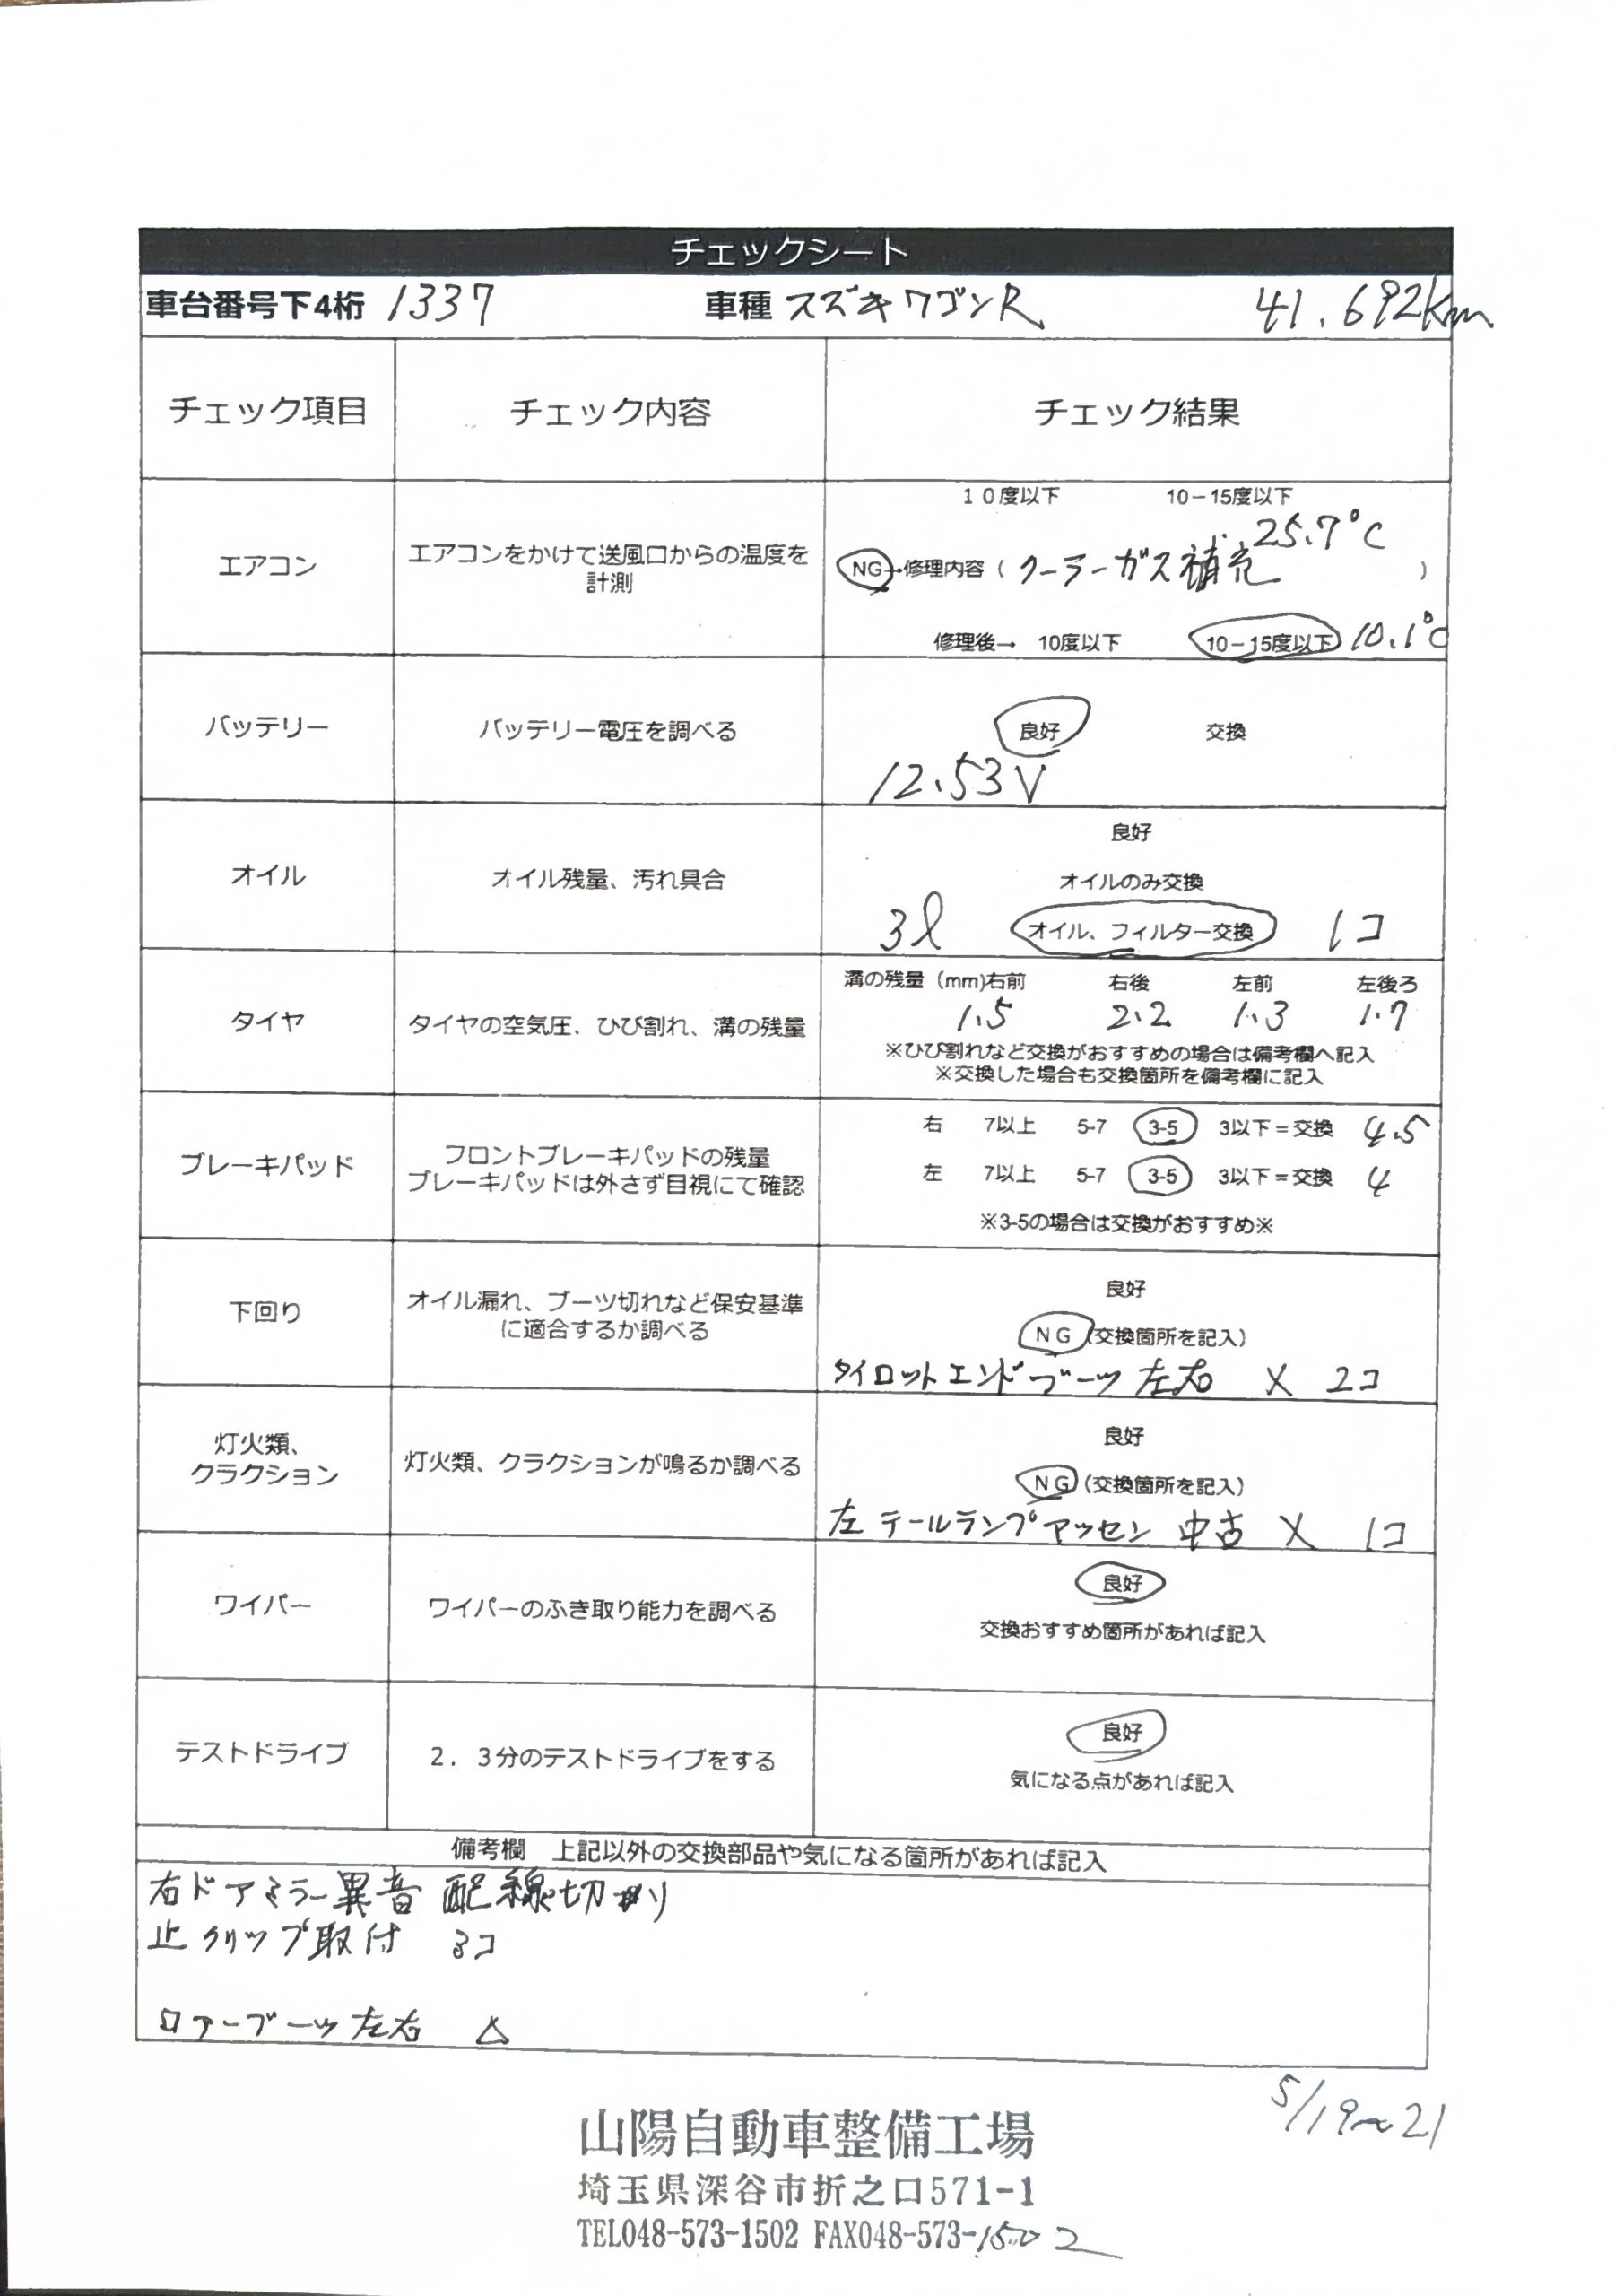 チェックシート
車台番号下4桁 1337 車種 スズキワゴンR 41.692km
チェック項目 チェック内容 チェック結果
10度以下 10-15度以下
エアコン エアコンをかけて送風口からの温度を計測 25.7℃
NG→修理内容（クーラーガス補充）
修理後→ 10度以下 10-15度以下 10.1℃
バッテリー バッテリー電圧を調べる 良好 交換
12.53V
良好
オイル オイル残量、汚れ具合 オイルのみ交換
3ℓ オイル、フィルター交換 1コ
溝の残量（mm)右前 右後 左前 左後ろ
タイヤ タイヤの空気圧、ひび割れ、溝の残量 1.5 2.2 1.3 1.7
※ひび割れなど交換がおすすめの場合は備考欄へ記入
※交換した場合も交換箇所を備考欄に記入
右 7以上 5-7 3-5 3以下＝交換 4.5
ブレーキパッド フロントブレーキパッドの残量
ブレーキパッドは外さず目視にて確認
左 7以上 5-7 3-5 3以下＝交換 4
※3-5の場合は交換がおすすめ※
下回り オイル漏れ、ブーツ切れなど保安基準に適合するか調べる 良好
NG（交換箇所を記入）
タイロットエンドブーツ 左右 × 2コ
灯火類、クラクション 灯火類、クラクションが鳴るか調べる 良好
NG（交換箇所を記入）
左 テールランプアッセン 中古 × 1コ
ワイパー ワイパーのふき取り能力を調べる 良好
交換おすすめ箇所があれば記入
テストドライブ 2．3分のテストドライブをする 良好
気になる点があれば記入
備考欄 上記以外の交換部品や気になる箇所があれば記入
右ドアミラー異音 配線切り
止クリップ取付 3コ
ロアーブーツ左右 △
5/19〜21
山陽自動車整備工場
埼玉県深谷市折之口571-1
TEL048-573-1502 FAX048-573-1502